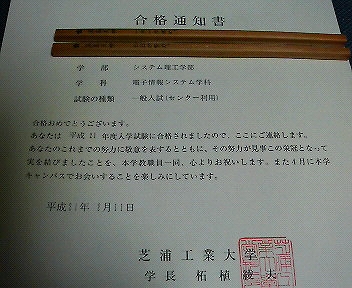 合格通知書
学　部　システム理工学部
学　科　電子情報システム学科
試験の種類　一般入試(センター利用)
合格おめでとうございます。
あなたは 平成 21 年度入学試験に合格されましたので、ここにご連絡します。
あなたのこれまでの努力に敬意を表するとともに、その努力が見事この栄冠となって
実を結びましたことを、本学教職員一同、心よりお祝いします。また4月に本学
キャンパスでお会いすることを楽しみにしています。
平成21年 2月11日
芝浦工業大学
学長 柘植綾夫